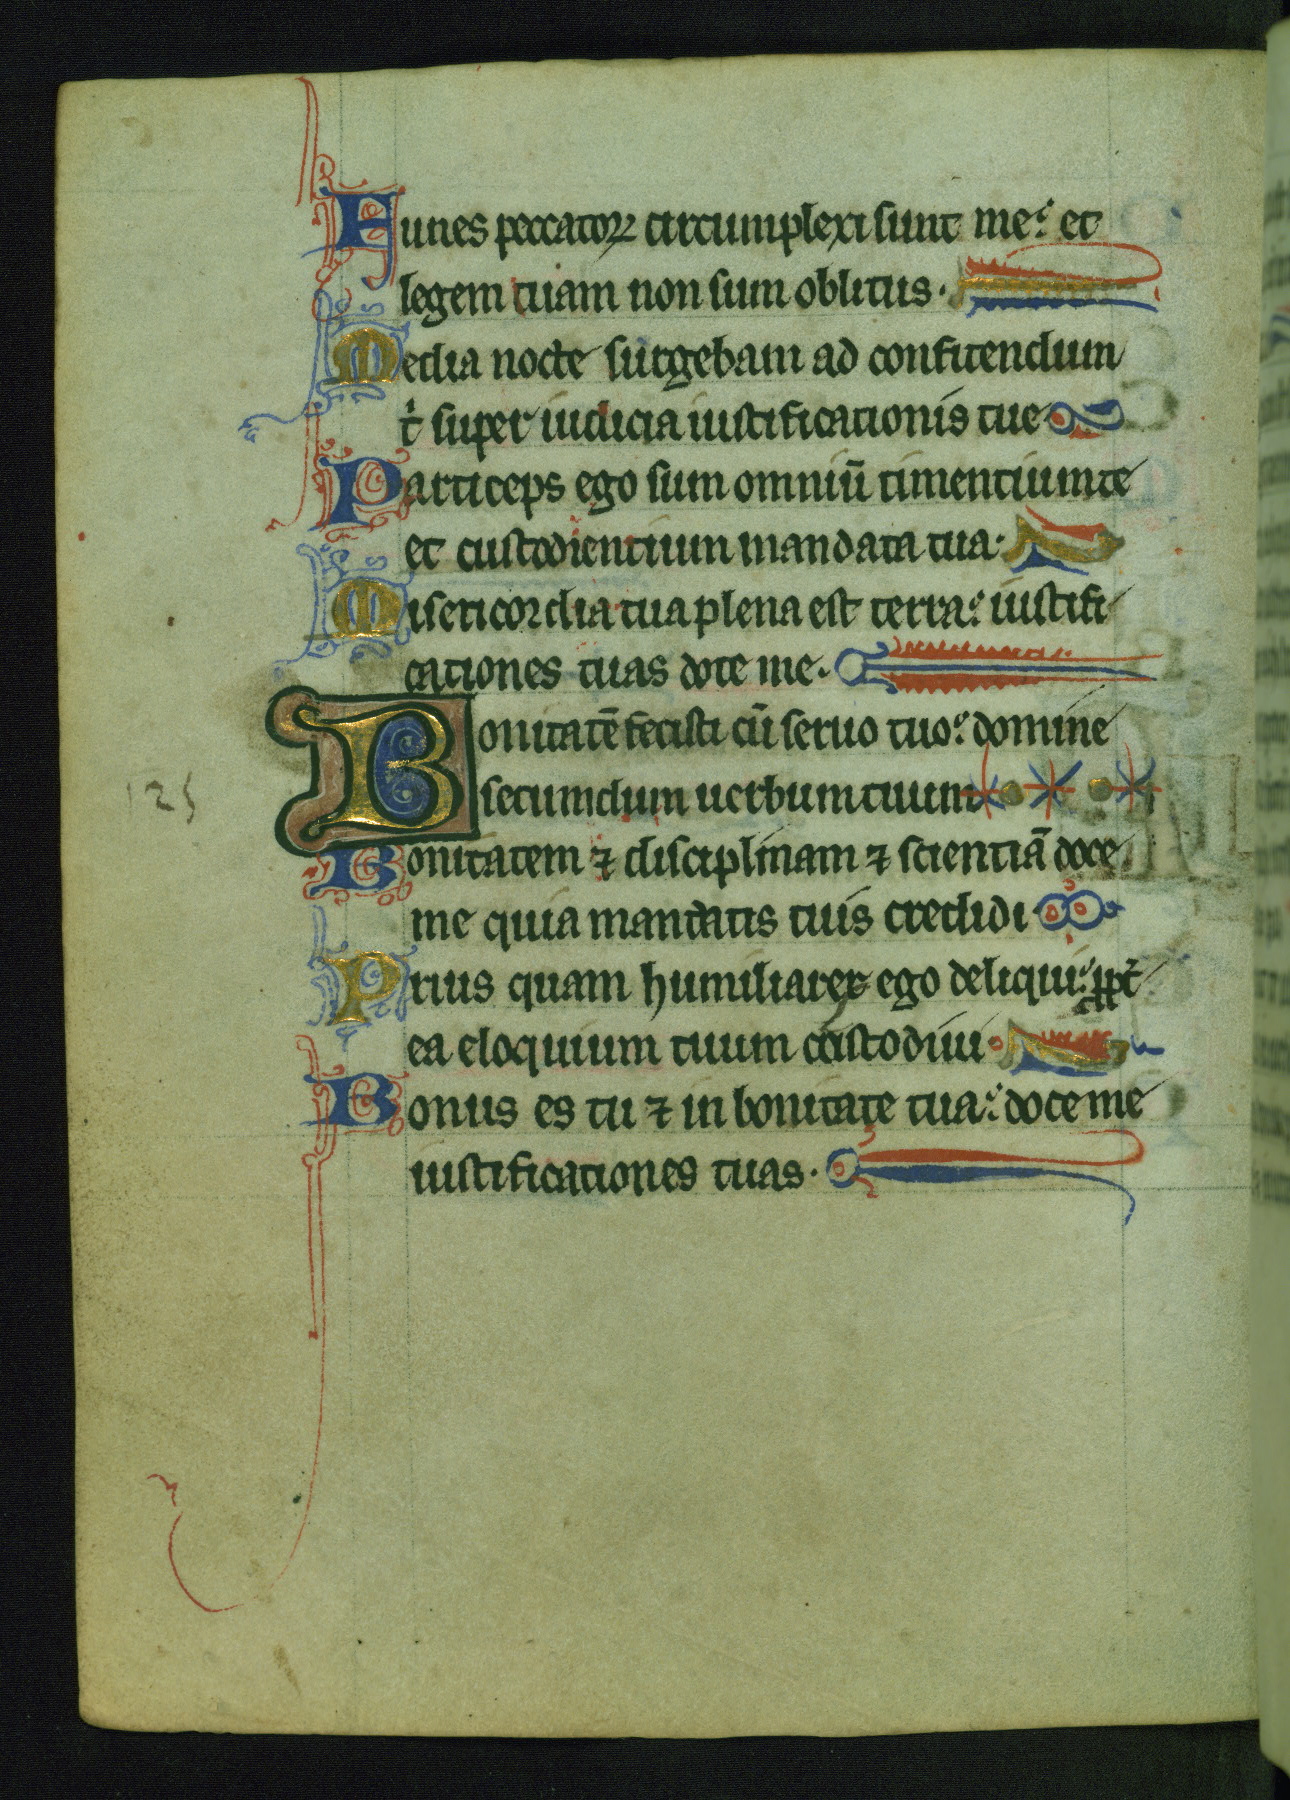 Funes peccatoꝝ circumplexi sunt me: et
legem tuam non sum oblitus.
Media nocte surgebam ad confitendum
t̉ super iudicia iustificationis tue
Particeps ego sum omniū timentium te
et custodientium mandata tua.
Misericordia tua plena est terra: iustifi
cationes tuas doce me.
Bonitatē fecisti cū seruo tuo: domine
secundum uerbum tuum
125
Bonitatem ⁊ disciplinam ⁊ scientiā doce
me quia mandatis tuis credidi
Prius quam humiliarer ego deliqui: ꝓpt̉
ea eloquium tuum custodiui
Bonus es tu ⁊ in bonitate tua: doce me
iustificationes tuas.